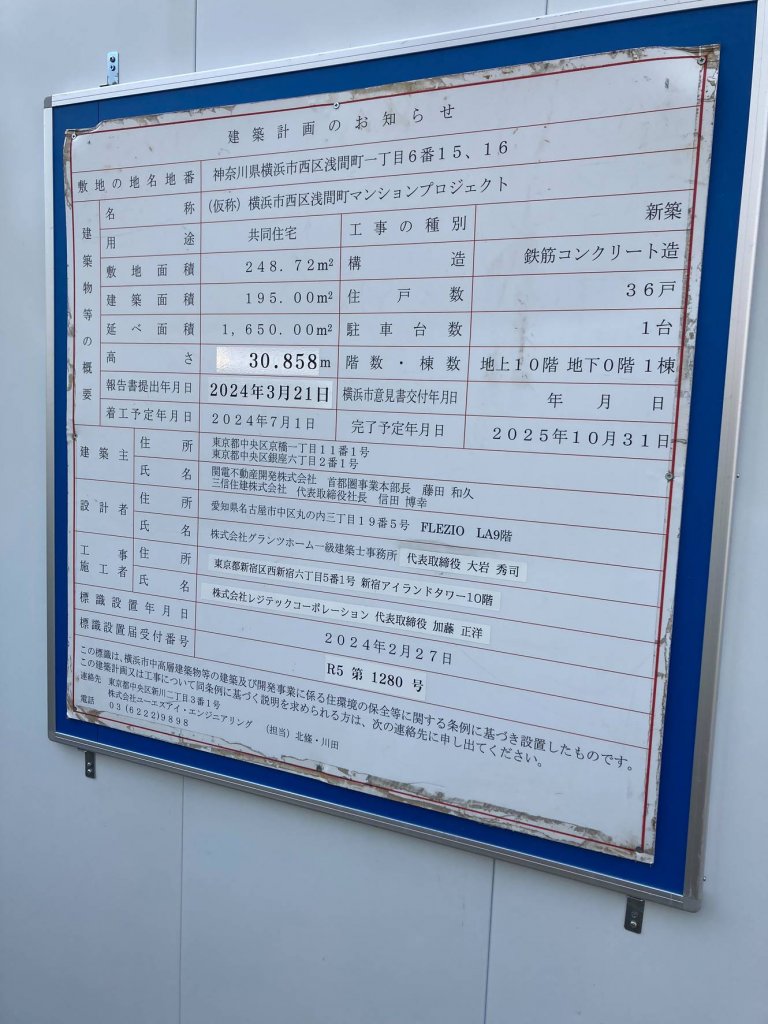 建築計画のお知らせ
敷地の地名地番 神奈川県横浜市西区浅間町一丁目6番15、16
建築物等の概要
名称 (仮称)横浜市西区浅間町マンションプロジェクト
用途 共同住宅 工事の種別 新築
敷地面積 248.72m² 構造 鉄筋コンクリート造
建築面積 195.00m² 住戸数 36戸
延べ面積 1,650.00m² 駐車台数 1台
高さ 30.858m 階数・棟数 地上10階 地下0階 1棟
報告書提出年月日 2024年3月21日 横浜市意見書交付年月日 年 月 日
着工予定年月日 2024年7月1日 完了予定年月日 2025年10月31日
建築主 住所 東京都中央区京橋一丁目11番1号
東京都中央区銀座六丁目2番1号
氏名 関電不動産開発株式会社 首都圏事業本部長 藤田 和久
三信住建株式会社 代表取締役社長 信田 博幸
設計者 住所 愛知県名古屋市中区丸の内三丁目19番5号 FLEZIO LA9階
氏名 株式会社グランツホーム一級建築士事務所 代表取締役 大岩 秀司
工事施工者 住所 東京都新宿区西新宿六丁目5番1号 新宿アイランドタワー10階
氏名 株式会社レジテックコーポレーション 代表取締役 加藤 正洋
標識設置年月日 2024年2月27日
標識設置届受付番号 R5 第 1280 号
この標識は、横浜市中高層建築物等の建築及び開発事業に係る住環境の保全等に関する条例に基づき設置したものです。
この建築計画又は工事について同条例に基づく説明を求められる方は、次の連絡先に申し出てください。
連絡先 東京都中央区新川二丁目3番1号
株式会社ユーエスアイ・エンジニアリング (担当)北條・川田
電話 03(6222)9898